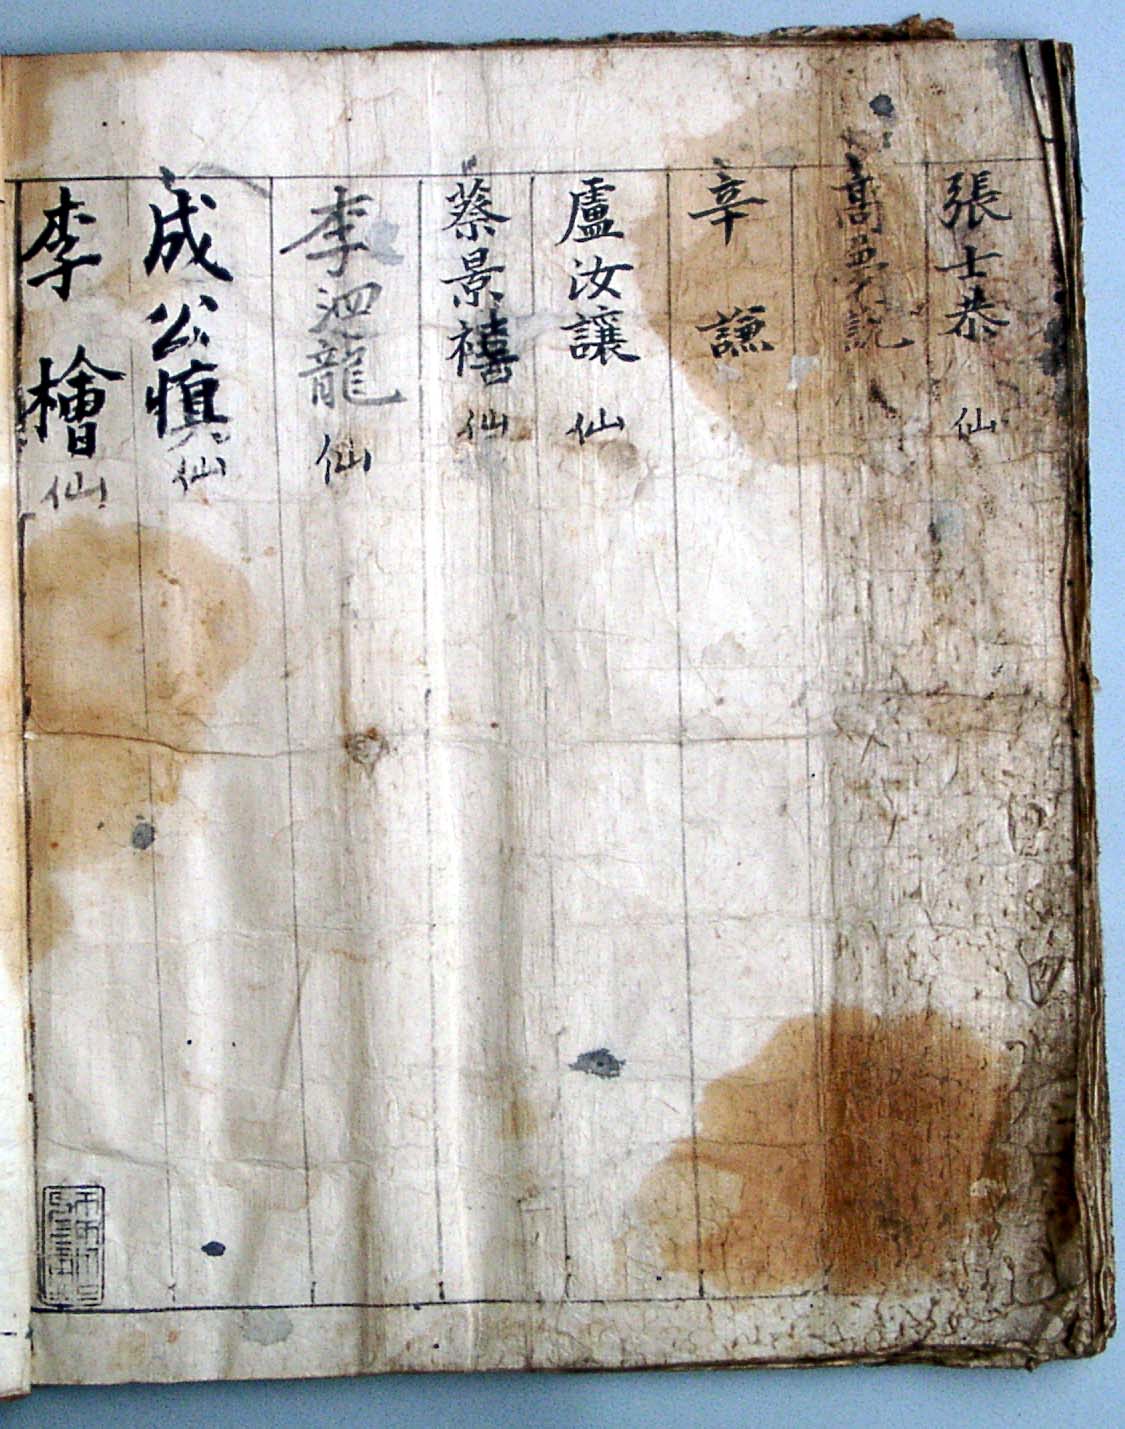 張士恭 仙
高
辛 謙
盧汝讓 仙
蔡景禧 仙
李泗龍 仙
成公愼 仙
李 檜 仙